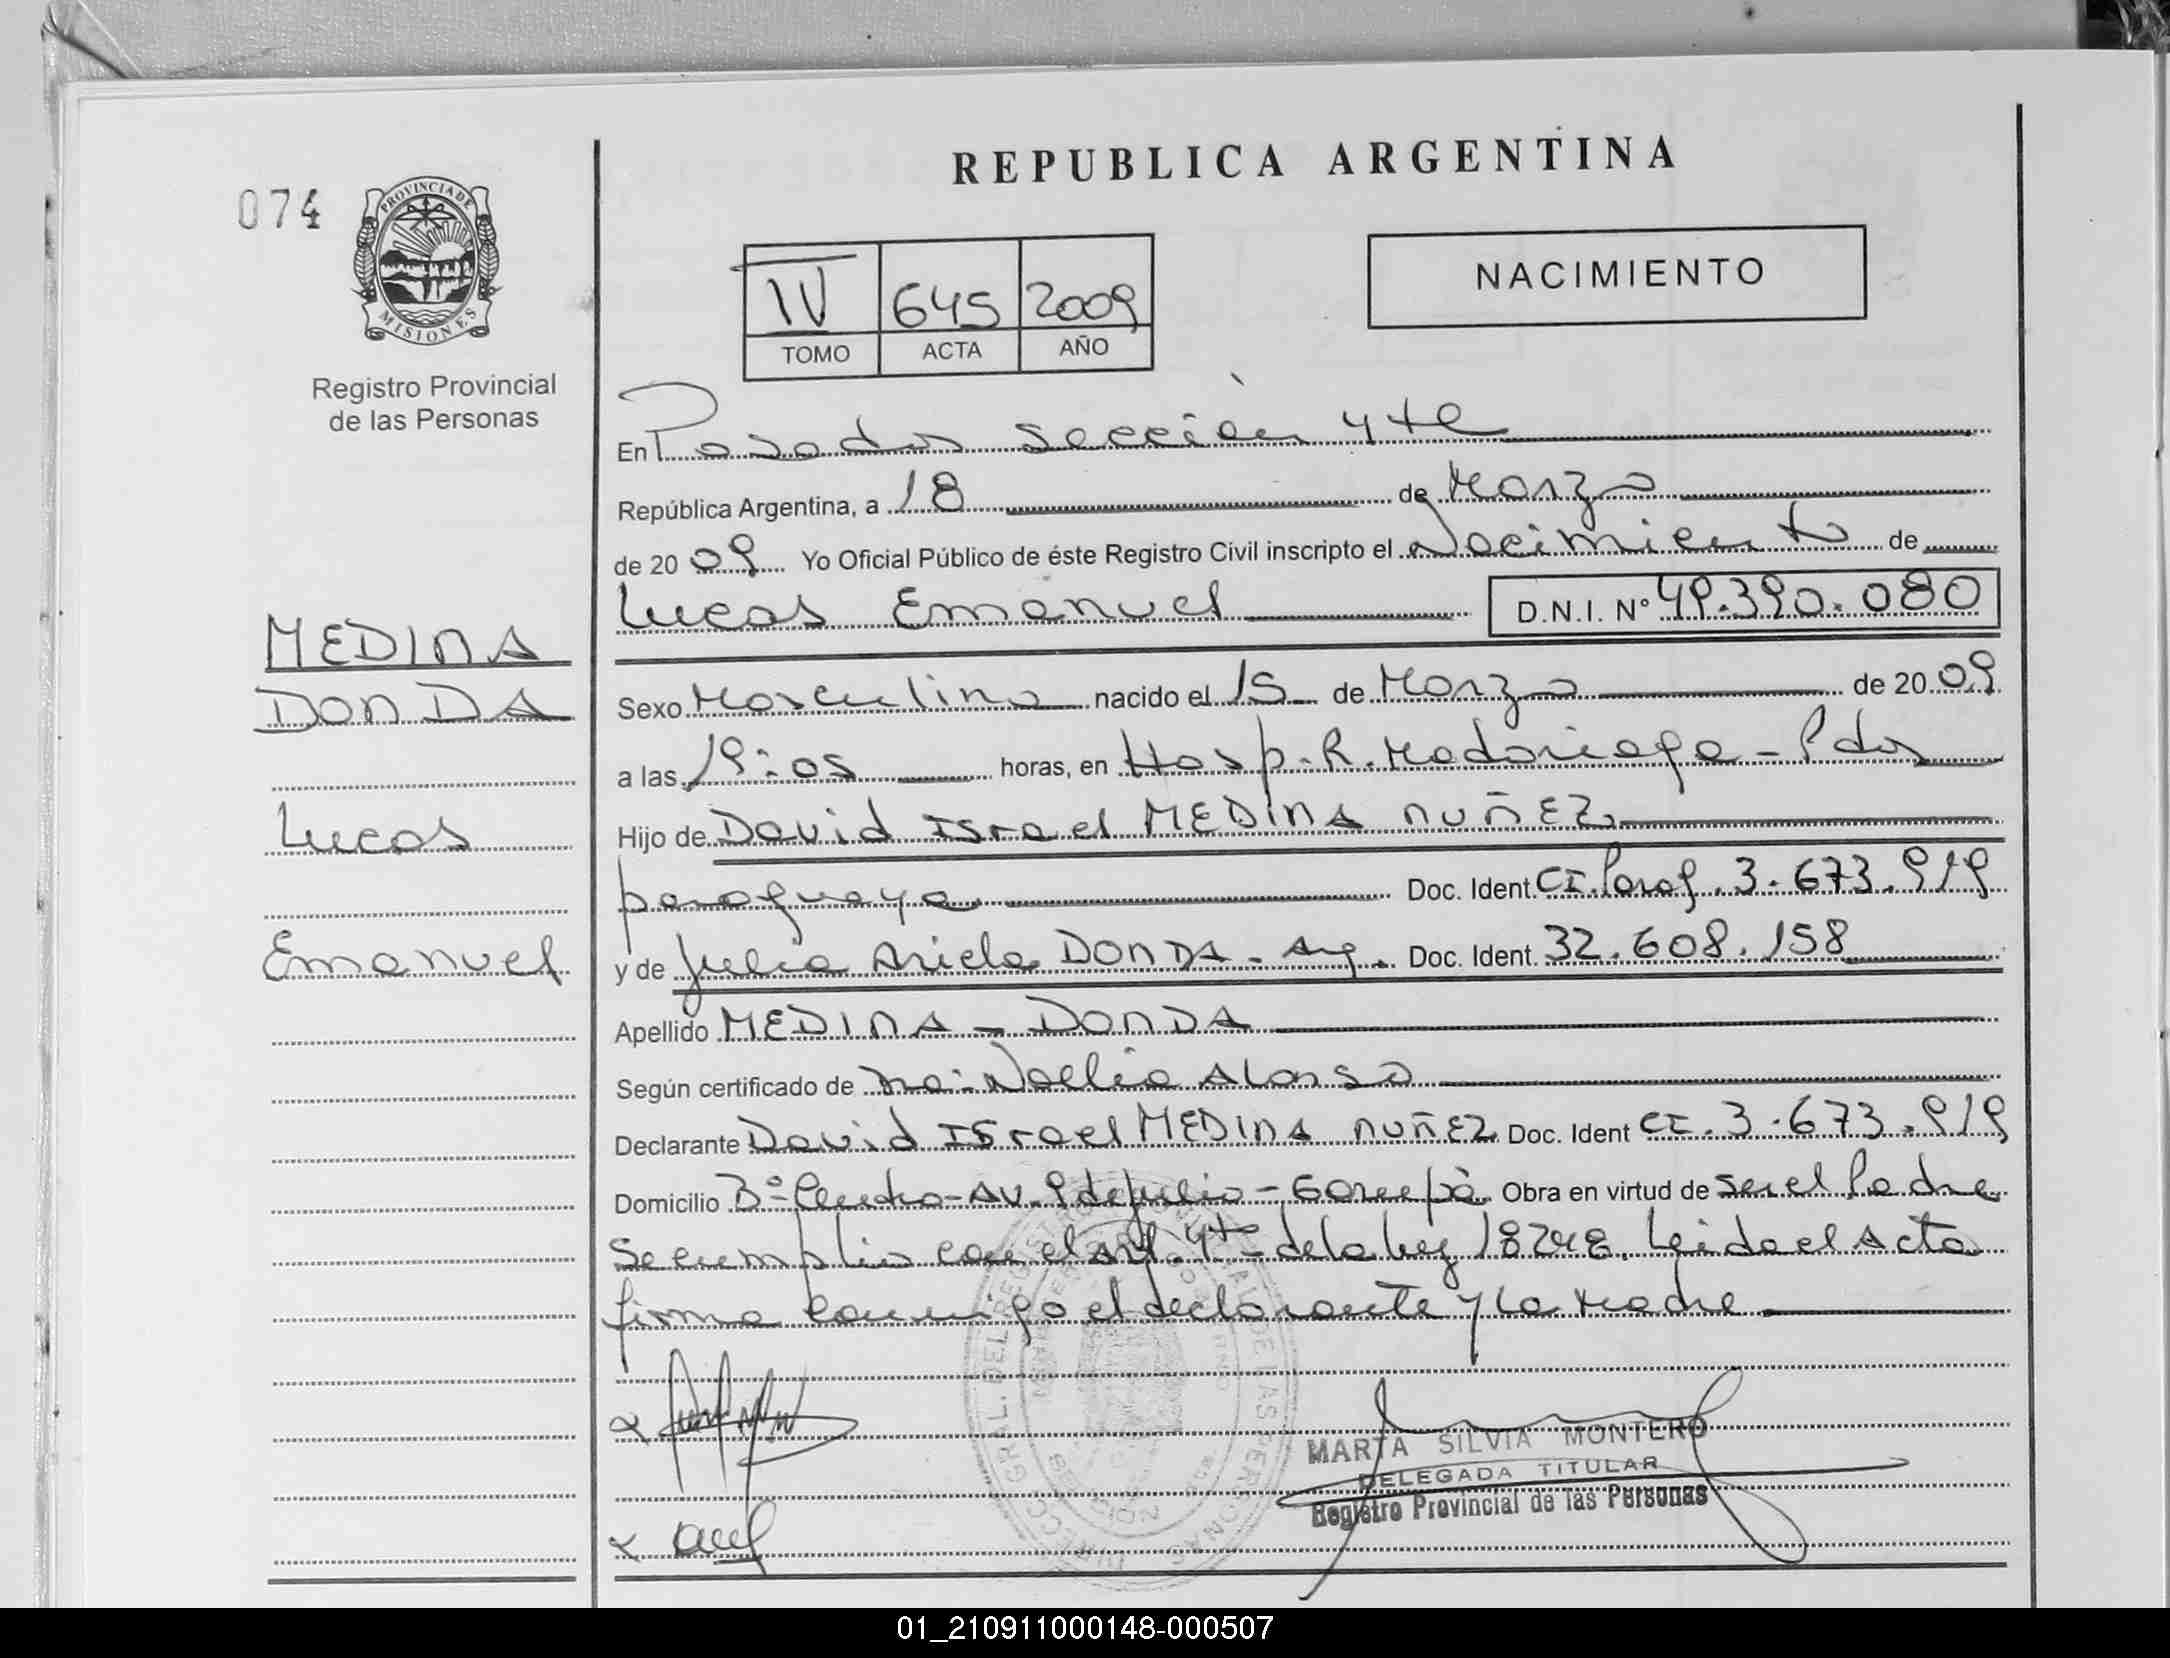 REPUBLICA ARGENTINA
074
PROVINCIA DE
MISIONES
Registro Provincial
de las Personas
IV 645 2009
TOMO ACTA AÑO
NACIMIENTO
En Posadas sección 4ta
República Argentina, a 18 de Marzo
de 20 09 Yo Oficial Público de éste Registro Civil inscripto el Nacimiento de
Lucas Emanuel D.N.I. Nº 49.390.080
MEDINA
DONDA
Lucas
Emanuel
Sexo Masculino nacido el 15 de Marzo de 20 09
a las 19:05 horas, en Hosp. R. Madariaga - Pdas
Hijo de David Israel MEDINA NUÑEZ
paraguaya Doc. Ident. CI. Parag. 3.673.919
y de Julia Ariela DONDA - Arg. Doc. Ident. 32.608.158
Apellido MEDINA - DONDA
Según certificado de Dra. Noelia Alonso
Declarante David Israel MEDINA NUÑEZ Doc. Ident CI. 3.673.919
Domicilio Bº Centro - AV. 9 de Julio - Garupá Obra en virtud de ser el Padre
Se cumplio con el Art. 4to de la ley 18248. Leida el Acta
firma conmigo el declarante y la Madre
MARTA SILVIA MONTERO
DELEGADA TITULAR
Registro Provincial de las Personas
01_210911000148-000507